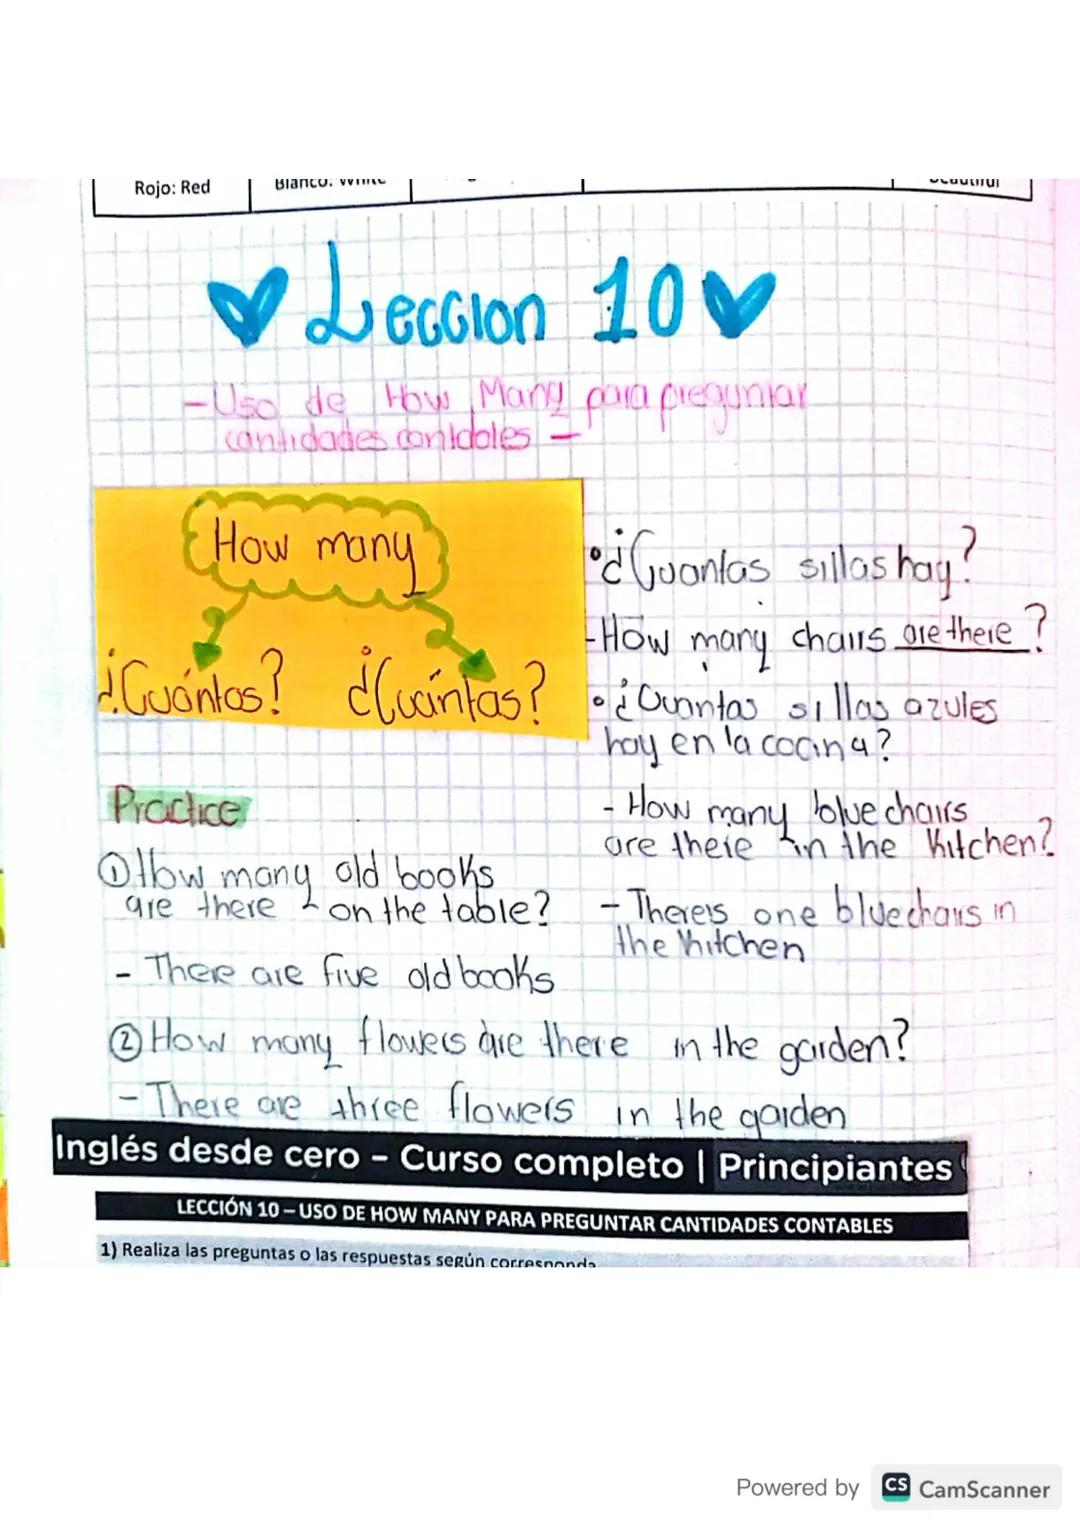 Rojo: Red
Blanco: White
Beautiful
Leccion 10
-Uso de How Many para preguntar
cantidades contables -
How many
¿Cuántos? ¿Cuántas?
•¿Cuantas sillas hay?
-How many chairs are there?
•¿Cuantas sillas azules
hay en la cocina?
- How many blue chairs
are there in the Kitchen?
- There's one blue chairs in
the kitchen
Practice
① How many old books
are there on the table?
- There are five old books
② How many flowers are there in the garden?
- There are three flowers in the garden
Inglés desde cero – Curso completo | Principiantes
LECCIÓN 10 – USO DE HOW MANY PARA PREGUNTAR CANTIDADES CONTABLES
1) Realiza las preguntas o las respuestas según corresponda
Powered by CS CamScanner